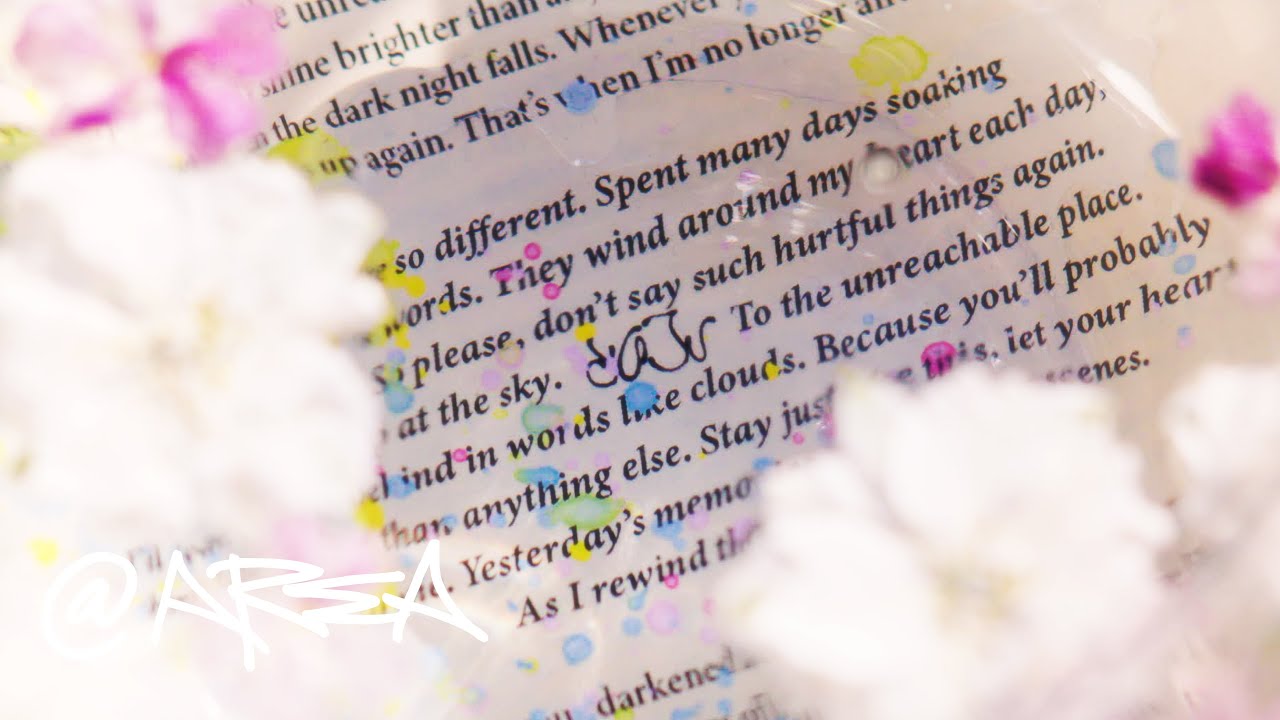 shine brighter than
the dark night falls. Whenever
up again. That's when I'm no longer
so different. Spent many days soaking
words. They wind around my heart each day,
please, don't say such hurtful things again.
at the sky. To the unreachable place.
in words like clouds. Because you'll probably
than anything else. Stay just this, let your heart
Yesterday's scenes.
As I rewind
darkened
@AREA